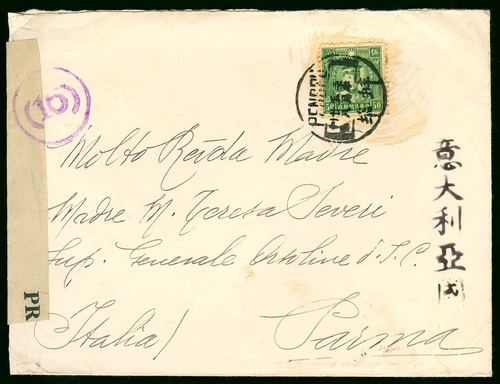 50
意大利亞国
Molto Rev.da Madre
Madre M. Teresa Severi
Sup. Generale Orsoline d. S. C.
Italia) Parma
PR